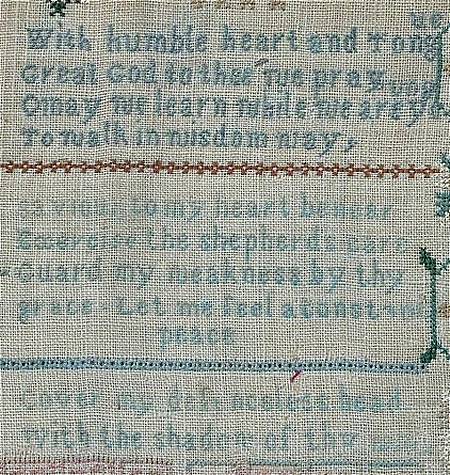 With humble heart and Tongue
Great God to thee we pray
O may we learn while we are young
To walk in wisdom way,
to my heart be near
the shepherds care
Guard my weakness by thy
grace Let me feel a constant
peace
Cover my head
With the shadow of thy